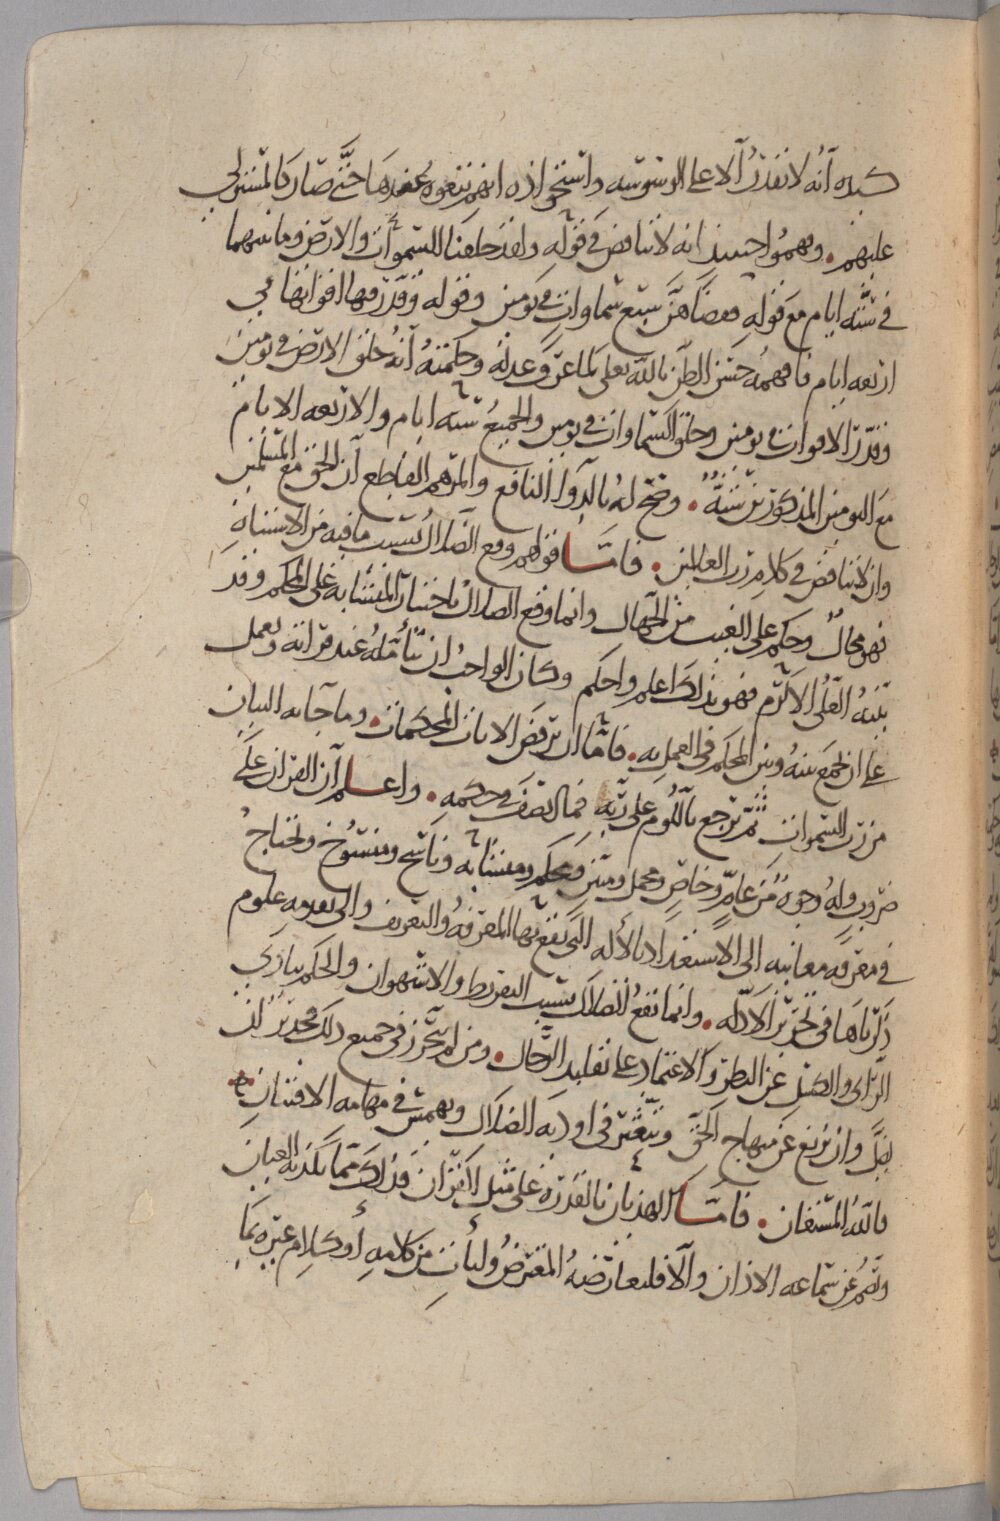 كيده أنه لا يقدر إلا على الوسوسة واستحواذه انهم يتبعوه بعدها حتى صار كالمستولي
عليهم. وفهموا حينئذ انه لا تناقض في قوله ولقد خلقنا السموات والارض وما بينهما
في ستة ايام مع قوله فقضاهن سبع سماوات في يومين وقوله وقدر فيها اقواتها في
اربعة ايام فافهمه حسن الظن بالله تعلى لما عرف عدله وحكمته أنه خلق الارض في يومين
وقدر الاقوات في يومين وخلق السماوات في يومين والجميع ستة ايام والاربعة الايام
مع اليومين المذكورين ستة. وضح له بالدواء النافع والمرهم القاطع أن الحق مع المسلمين
وان لا تناقض في كلام رب العالمين. فامسا قولهم وقع الضلال بسبب ما فيه من الاشتباه
فهو محال وحكم على الغيب من الجهال وانما وقع الضلال باختيار المتشابه على المحكم وقد
بينه العلي الاكرم فهو بذلك اعلم واحكم وكان الواجب ان يتأمله عند قرائته ويعمل
على ان يجمع بينه وبين المحكم في العمل به. فاما ان يرفض الايات المحكمات. وما جآ به البيان
من رب السموات ثم يرجع باللوم على ربه فما انصف في حكمه. واعلم أن القران على
ضروب وله وجوه من عام وخاص ومجمل ومبين ومحكم ومتشابه وناسخ ومنسوخ ويحتاج
في معرفة معانيه الى الاستعداد بالأله التي تقع بها المعرفة والتعريف والى تقدمه علوم
ذكرناها في تحرير الادله. وانما تقع الضلال بسبب التفريط والاستهوان والحكم ببادي
الرأى والكسل عن النظر والاعتماد على تقليد الرجال. ومن لم يتحرز في جميع ذلك فجدير لان
يضل وان يزيغ عن منهاج الحق ويتعثر في اودية الضلال ويهمش في مهامه الافتتان.
فالله المستعان. فامسا الهذيان بالقدرة على مثل القران فذلك مما يكذبه العيان
وتصم عن سماعه الاذان والا فليعارضه المعترض وليأت من كلامه أو كلام غيره بما